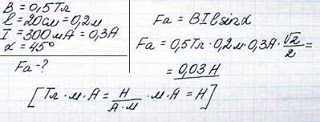 B = 0,5Тл
l = 20см = 0,2м
I = 300мА = 0,3А
α = 45°
Fа - ?
Fа = BIlsinα
Fа = 0,5Тл · 0,2м · 0,3А · √2/2 =
= 0,03 Н
[Тл · м · А = Н/А·м · м · А = Н]